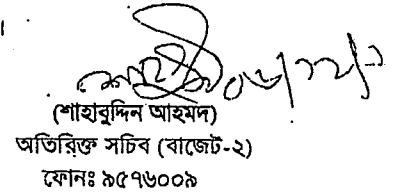 (শাহাবুদ্দিন আহমদ)
অতিরিক্ত সচিব (বাজেট-২)
ফোনঃ ৯৫৭৬০০৯